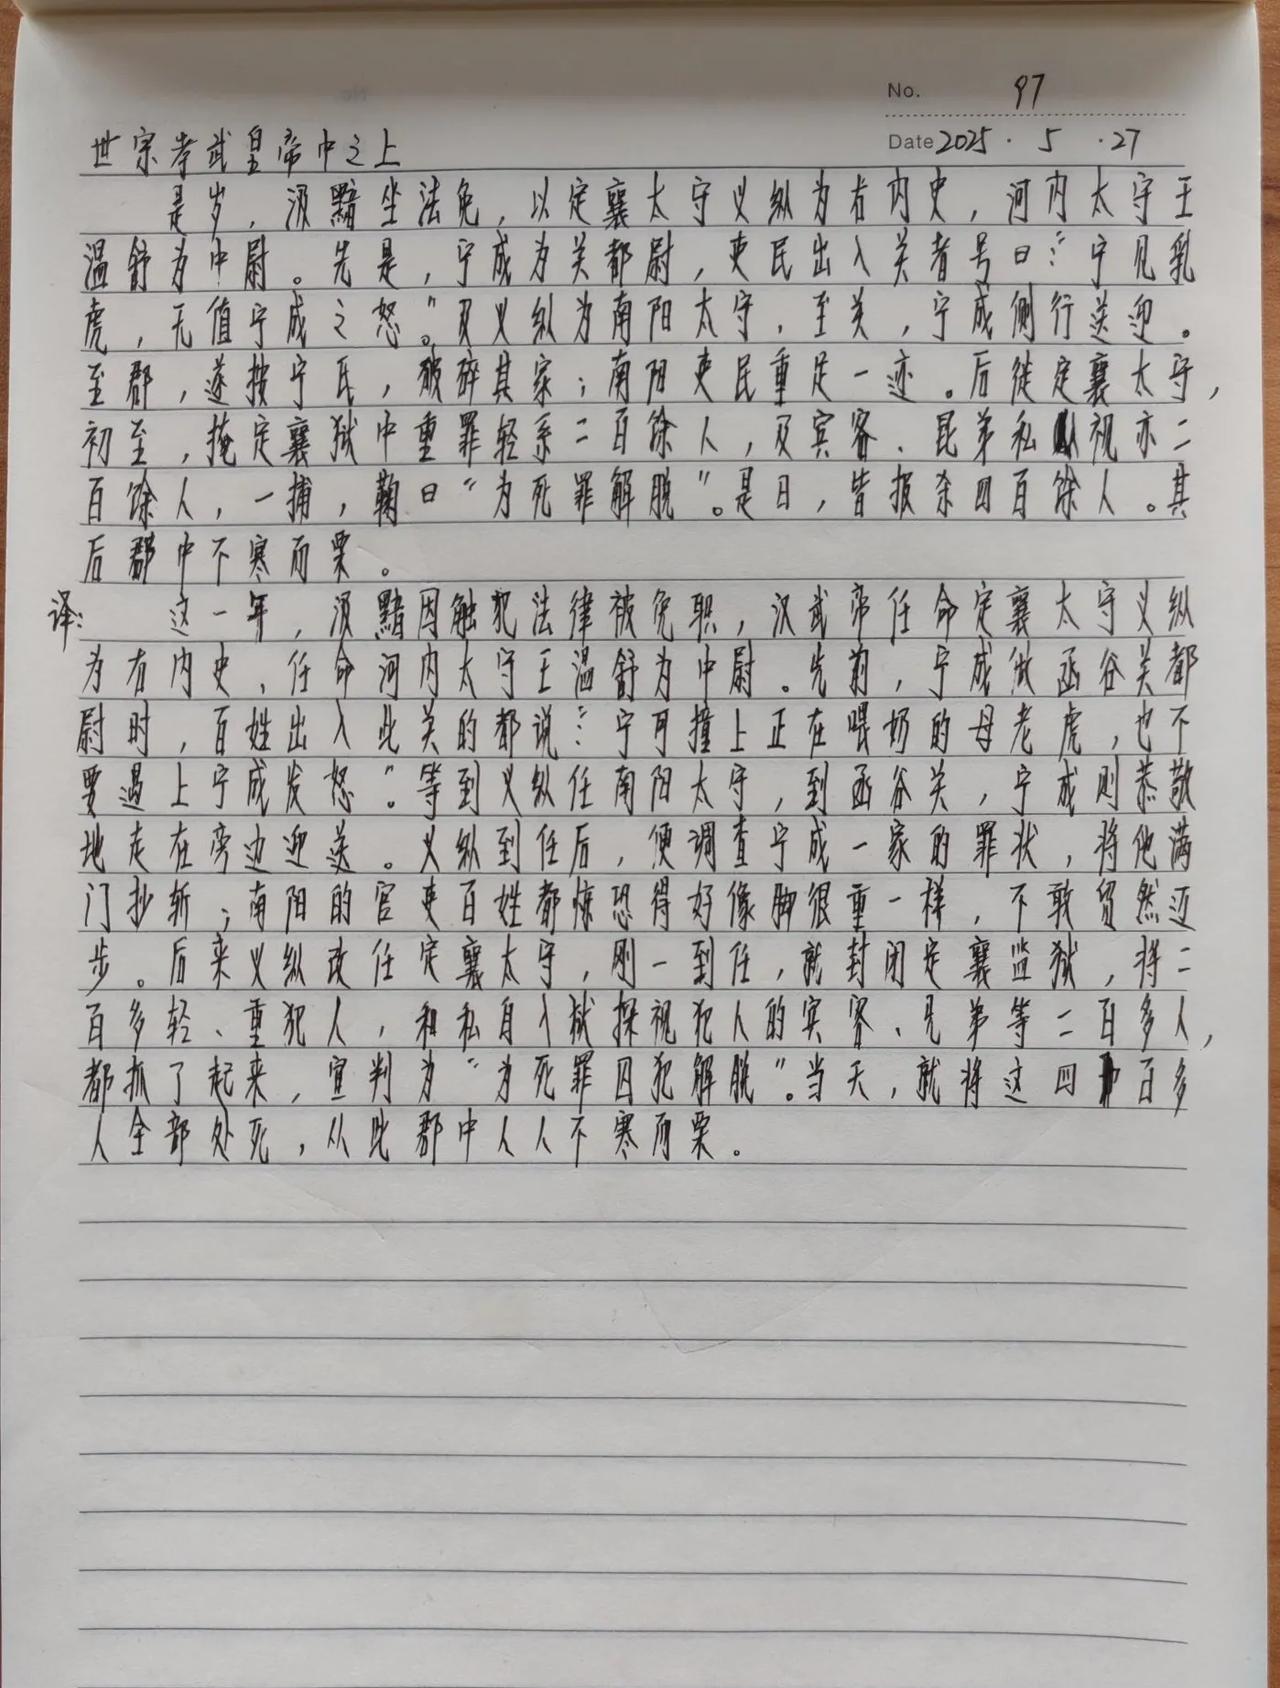 No. 97
Date 2025 · 5 · 27
世宗孝武皇帝中之上
是岁，汲黯坐法免，以定襄太守义纵为右内史，河内太守王
温舒为中尉。先是，宁成为关都尉，吏民出入关者号曰：“宁见乳
虎，无值宁成之怒。”及义纵为南阳太守，至关，宁成侧行送迎。
至郡，遂按宁氏，破碎其家；南阳吏民重足一迹。后徙定襄太守，
初至，掩定襄狱中重罪轻系二百馀人，及宾客、昆弟私入视亦二
百馀人，一捕，鞠曰“为死罪解脱”。是日，皆报杀四百馀人。其
后郡中不寒而栗。
译：这一年，汲黯因触犯法律被免职，汉武帝任命定襄太守义纵
为右内史，任命河内太守王温舒为中尉。先前，宁成做函谷关都
尉时，百姓出入此关的都说：“宁可撞上正在喂奶的母老虎，也不
要遇上宁成发怒。”等到义纵任南阳太守，到函谷关，宁成则恭敬
地走在旁边迎送。义纵到任后，便调查宁成一家的罪状，将他满
门抄斩；南阳的官吏百姓都惊恐得好像脚很重一样，不敢贸然迈
步。后来义纵改任定襄太守，刚一到任，就封闭定襄监狱，将二
百多轻、重犯人，和私自入狱探视犯人的宾客、兄弟等二百多人，
都抓了起来，宣判为“为死罪囚犯解脱”。当天，就将这四百多
人全部处死，从此郡中人人不寒而栗。